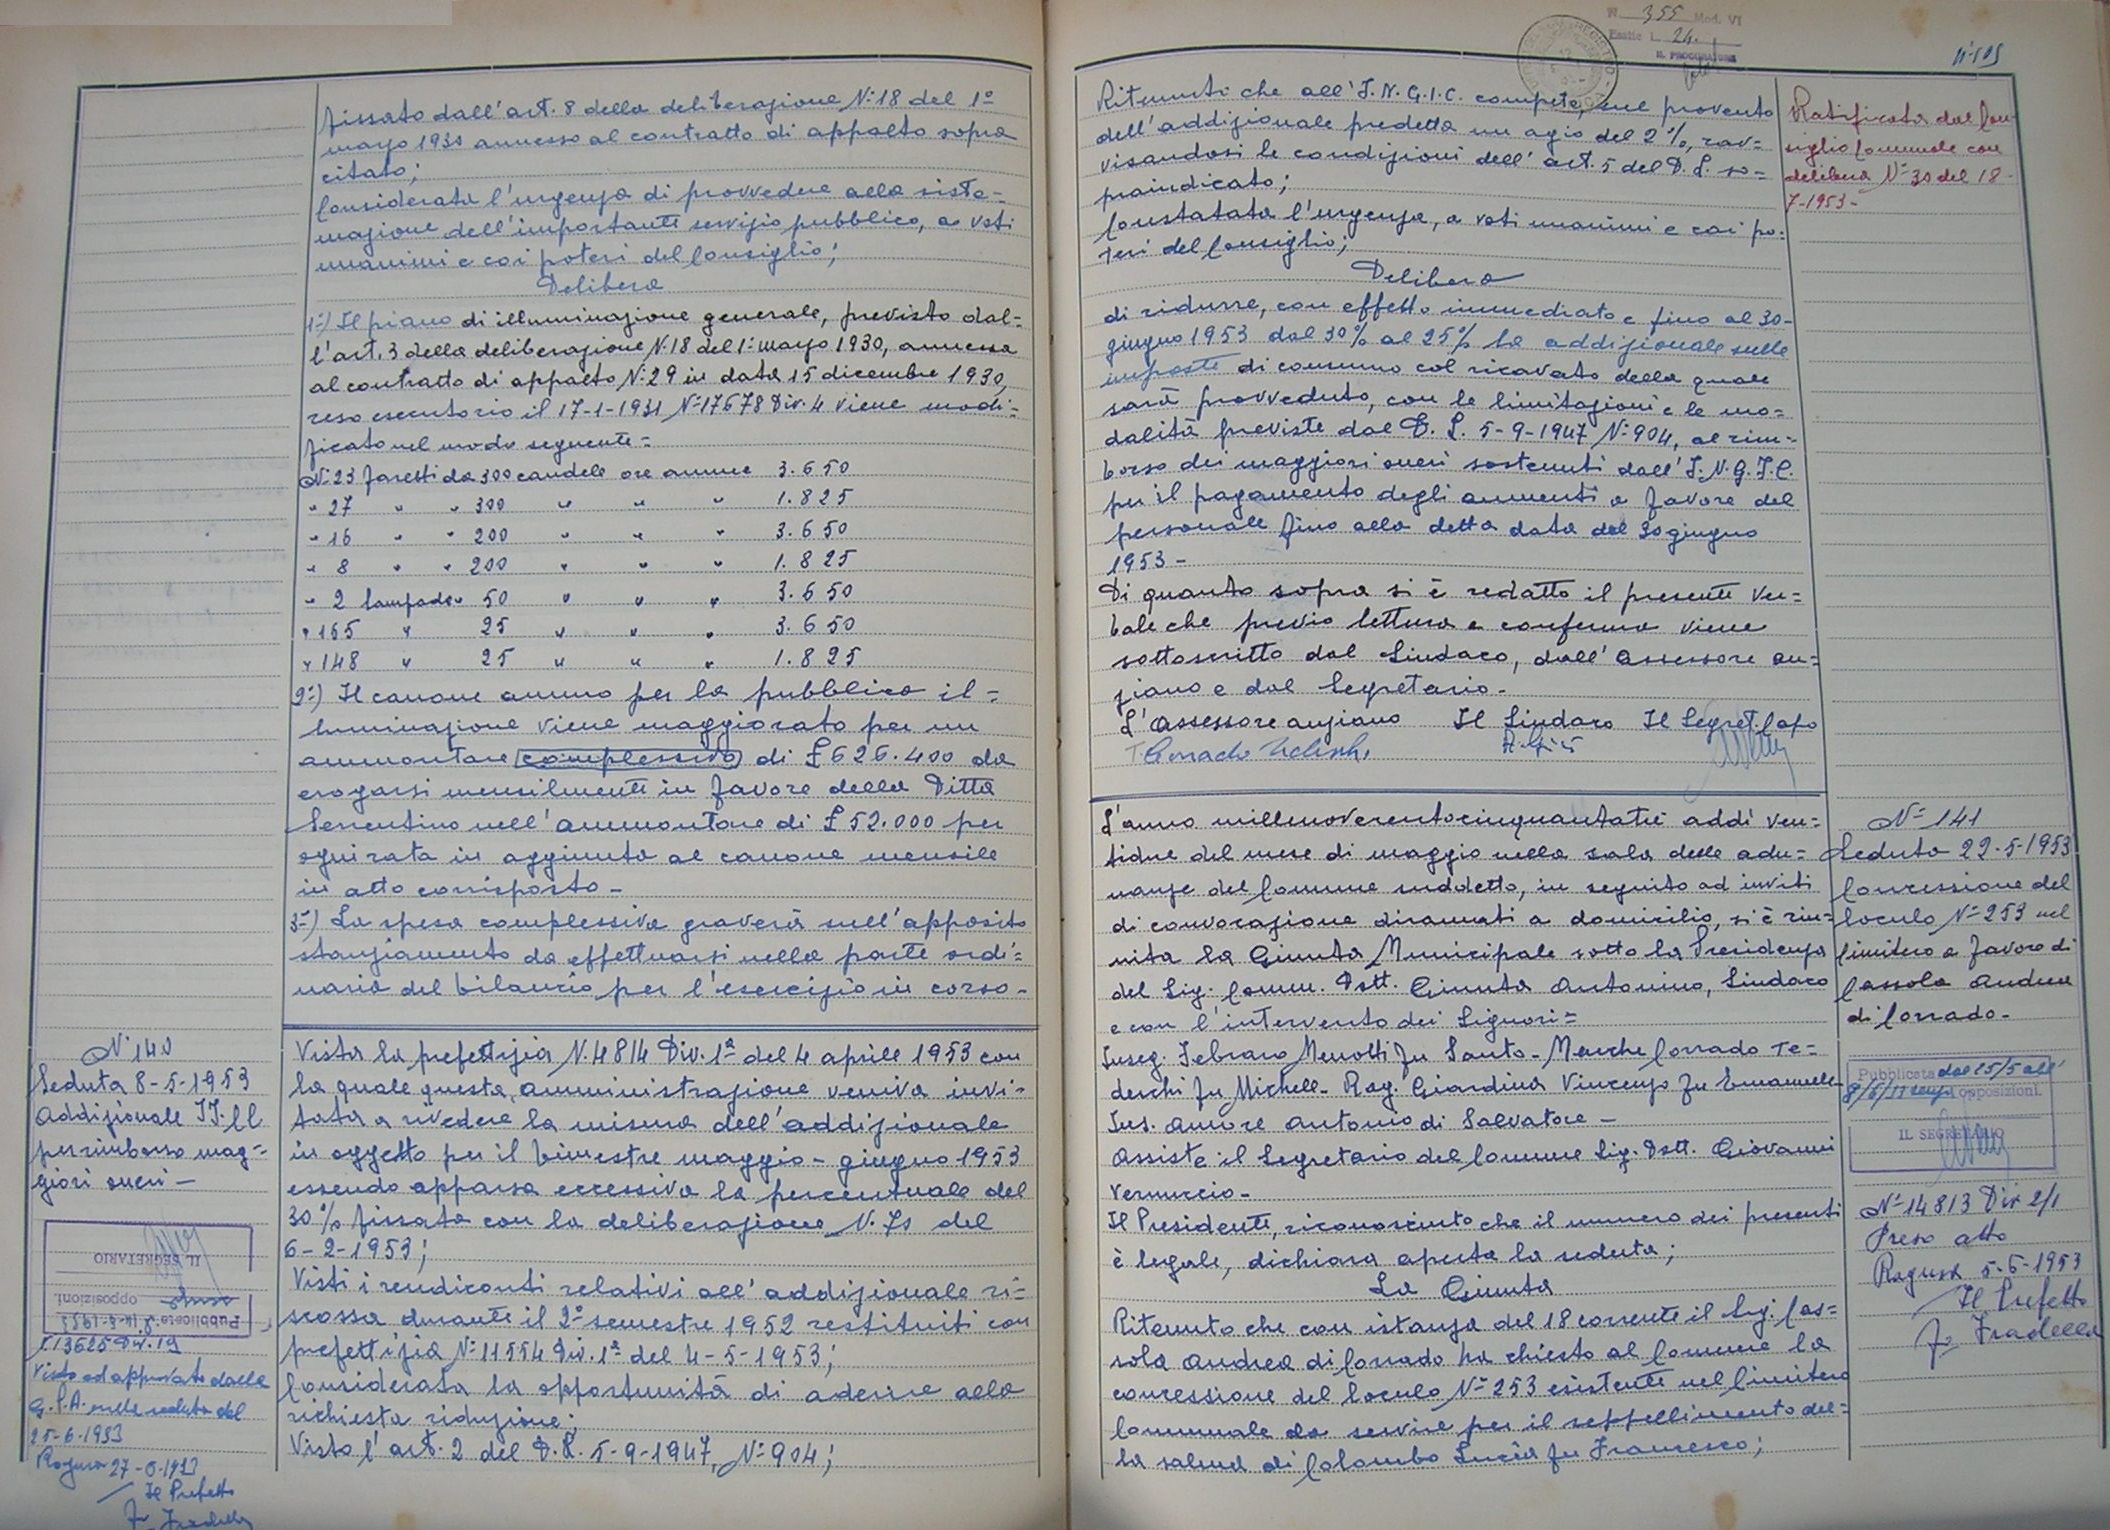 fissato dall'art. 8 della deliberazione N. 18 del 1°
marzo 1930 annesso al contratto di appalto sopra
citato;
Considerata l'urgenza di provvedere alla siste=
mazione dell'importante servizio pubblico, a voti
unanimi e coi poteri del Consiglio;
Delibera
1°) Il piano di illuminazione generale, previsto dal=
l'art. 3 della deliberazione N. 18 del 1° marzo 1930, annessa
al contratto di appalto N. 29 in data 15 dicembre 1930,
reso esecutorio il 17-1-1931 N° 17678 Div. 4 viene modi=
ficato nel modo seguente=
N. 23 faretti da 300 candele ore annue 3.650
" 27 " " 300 " " " 1.825
" 16 " " 200 " " " 3.650
" 8 " " 200 " " " 1.825
" 2 lampade " 50 " " " 3.650
" 165 " 25 " " " 3.650
" 148 " 25 " " " 1.825
2°) Il canone annuo per la pubblica il=
luminazione viene maggiorato per un
ammontare complessivo di £ 626.400 da
erogarsi mensilmente in favore della Ditta
Serrentino nell'ammontare di £ 52.000 per
ogni rata in aggiunta al canone mensile
in atto corrisposto -
3°) La spesa complessiva graverà sull'apposito
stanziamento da effettuarsi nella parte ordi=
naria del bilancio per l'esercizio in corso -
N° 140
Seduta 8-5-1953
Addizionale II. CC
per rimborso mag=
giori oneri -
Pubblicata
opposizioni.
IL SEGRETARIO
N. 13625 Div. 19
Visto ed approvato dalla
G.P.A. nella seduta del
25-6-1953
Ragusa 27-6-1953
Il Prefetto
Vista la prefettizia N. 4814 Div. 1ª del 4 aprile 1953 con
la quale questa amministrazione veniva invi=
tata a rivedere la misura dell'addizionale
in oggetto per il bimestre maggio - giugno 1953
essendo apparsa eccessiva la percentuale del
30% fissata con la deliberazione N. 70 del
6-2-1953;
Visti i rendiconti relativi all'addizionale ri=
scossa durante il 2° semestre 1952 restituiti con
prefettizia N° 11554 Div. 1ª del 4-5-1953;
Considerata la opportunità di aderire alla
richiesta riduzione;
Visto l'art. 2 del D.L. 5-9-1947, N° 904;
N. 355 Mod. VI
Esatte L. 24.
IL PROCURATORE
Ritenuto che all'I.N.G.I.C. compete, sul provento
dell'addizionale predetta un agio del 2%, rav=
visandosi le condizioni dell'art. 5 del D.L. so=
praindicato;
Constatata l'urgenza, a voti unanimi e coi po=
teri del Consiglio;
Delibera
di ridurre, con effetto immediato e fino al 30-
giugno 1953 dal 30% al 25% la addizionale sulle
imposte di consumo col ricavato della quale
sarà provveduto, con le limitazioni e le mo=
dalità previste dal D.L. 5-9-1947 N° 904, al rim=
borso dei maggiori oneri sostenuti dall'I.N.G.I.C.
per il pagamento degli aumenti a favore del
personale fino alla detta data del 30 giugno
1953 -
Di quanto sopra si è redatto il presente ver=
bale che previo lettura e conferma viene
sottoscritto dal Sindaco, dall'Assessore an=
ziano e dal Segretario -
L'Assessore anziano Il Sindaco Il Segret. Capo
Ratificata dal Con
siglio Comunale con
delibera N° 30 del 18-
7-1953 -
L'anno millenovecentocinquantatré addì ven=
tidue del mese di maggio nella sala delle adu=
nanze del Comune suddetto, in seguito ad inviti
di convocazione diramati a domicilio, si è riu=
nita la Giunta Municipale sotto la Presidenza
del Sig. Comm. Dott. Giunta Antonino, Sindaco
e con l'intervento dei Signori=
Inseg. Febraro Menotti fu Santo - Marche Corrado Te=
deschi fu Michele - Rag. Giardina Vincenzo fu Emanuele
Ins. Amore Antonio di Salvatore -
Assiste il Segretario del Comune Sig. Dott. Giovanni
Vernuccio -
Il Presidente, riconosciuto che il numero dei presenti
è legale, dichiara aperta la seduta;
La Giunta
Ritenuto che con istanza del 18 corrente il Sig. Cas=
sola Andrea di Corrado ha chiesto al Comune la
concessione del loculo N° 253 esistente nel Cimitero
Comunale da servire per il seppellimento del=
la salma di Colombo Lucia fu Francesco;
N° 141
Seduta 22-5-1953
Concessione del
loculo N° 253 nel
Cimitero a favore di
Cassola Andrea
di Corrado -
Pubblicata dal 25/5 all'
8/6/53 senza opposizioni.
IL SEGRETARIO
N° 14813 Div 2/1
Preso atto
Ragusa 5-6-1953
Il Prefetto